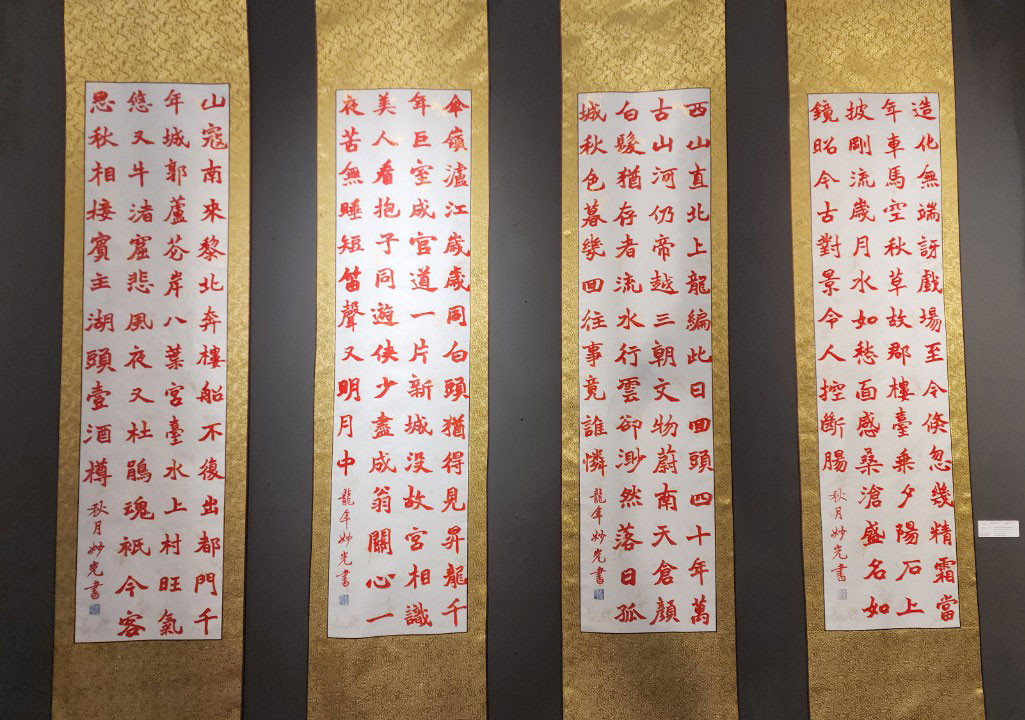 造化無端訝戲場至今倏忽幾精霜當
年車馬空秋草故郡樓臺乘夕陽石上
披剛流歲月水如愁面感桑滄盛名如
鏡昭今古對景令人控斷腸
秋月妙光書
西山直北上龍編此日囬頭四十年萬
古山河仍帝越三朝文物蔚南天倉顏
白髮猶存者流水行雲卻渺然落日孤
城秋色暮幾囬往事竟誰憐
龍年妙光書
傘嶺瀘江歲歲同白頭猶得見昇龍千
年巨室成官道一片新城没故宮相識
美人看抱子同遊俠少盡成翁關心一
夜苦無睡短笛聲又明月中
龍年妙光書
山寇南來黎北奔樓船不復出都門千
年城郭蘆花岸八葉宮臺水上村旺氣
悠又牛渚窟悲風夜又杜鵑魂祇今客
思秋相接賓主湖頭壹酒樽
秋月妙光書